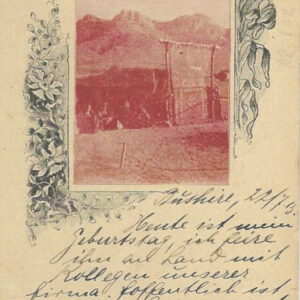 Bushire, 22/7.
Heute ist mein
Geburtstag, ich feire
ihn am Land mit
Kollegen unserer
Firma. Hoffentlich ist